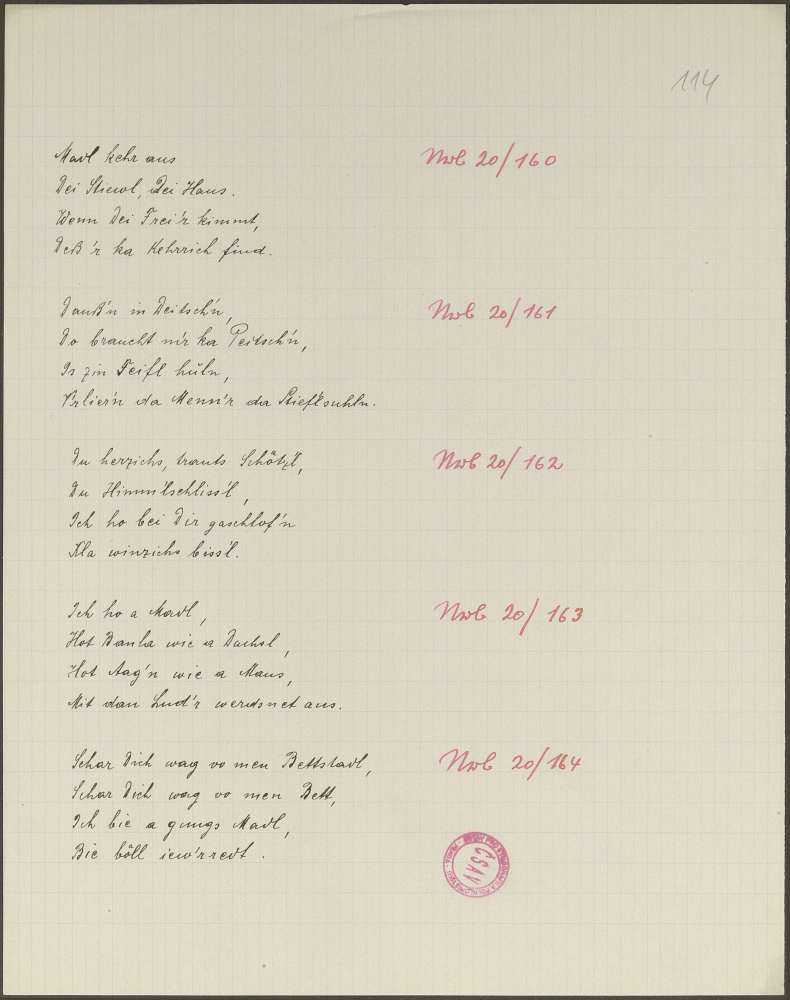 114
Madl kehr aus
Dei Stiewl, Dei Haus.
Wenn Dei Frei'r kimmt,
Deß 'r ka Kehrrich find.
Nwb 20/160
Dauß'n in Deitsch'n,
Do braucht m'r ka Peitsch'n,
Is zin Teifl huln,
V'rlier'n da Menn'r da Stief'lsuhln.
Nwb 20/161
Du herzichs, trauts Schötz'l,
Du Himm'lschliss'l,
Ich ho bei Dir gaschlof'n
K'la winzichs biss'l.
Nwb 20/162
Ich ho a Madl,
Hot Banla wie a Dachsl,
Hot Aag'n wie a Maus,
Mit dan Lud'r werdsnet aus.
Nwb 20/163
Schar Dich wag vo men Bettstadl,
Schar Dich wag vo men Bett,
Ich bie a gungs Madl,
Bie böll iew'rredt.
Nwb 20/164
ČSAV